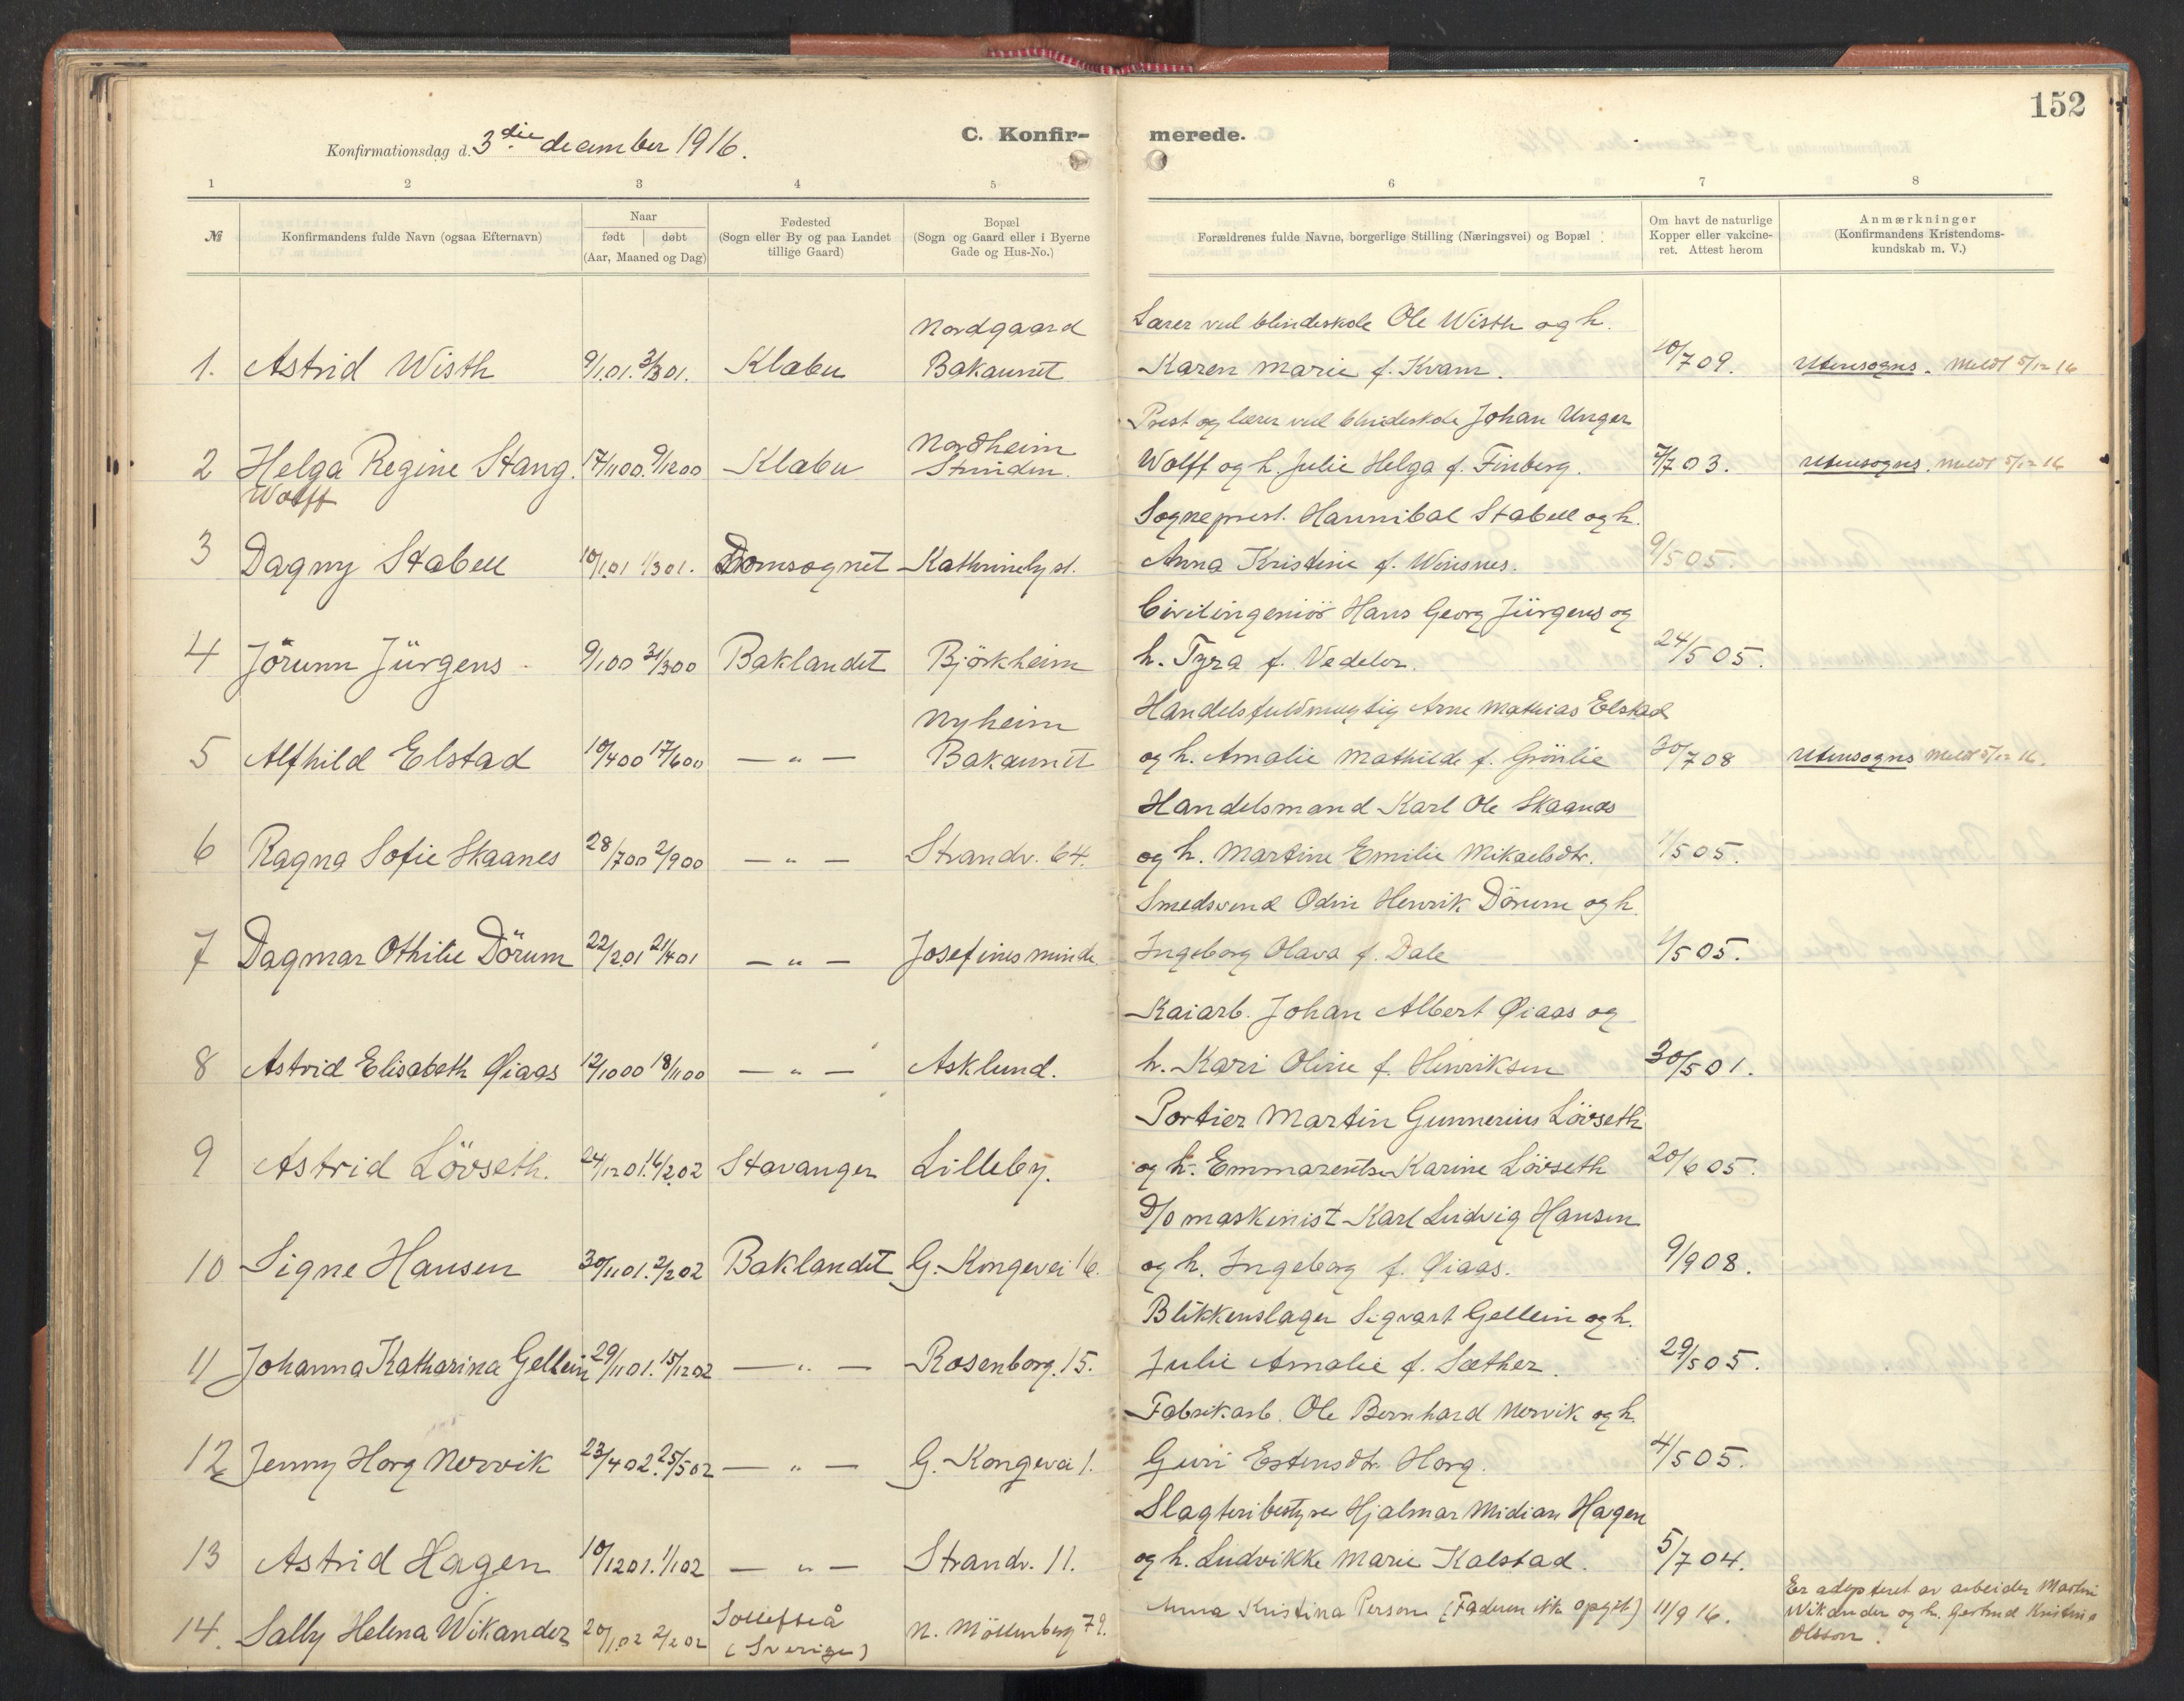 152
Konfirmationsdag d. 3die december 1916.
C. Konfirmerede.
1 2 3 4 5 6 7 8
№
Konfirmandens fulde Navn (ogsaa Efternavn)
Naar
født | døbt
(Aar, Maaned og Dag)
Fødested
(Sogn eller By og paa Landet
tillige Gaard)
Bopæl
(Sogn og Gaard eller i Byerne
Gade og Hus-No.)
Forældrenes fulde Navne, borgerlige Stilling (Næringsvei) og Bopæl
Om havt de naturlige
Kopper eller vakcine-
ret. Attest herom
Anmærkninger
(Konfirmandens Kristendoms-
kundskab m. V.)
Nordgaard Lærer ved blindeskole Ole Wisth og h.
1. Astrid Wisth 9/1.01. 3/3 01. Klæbu Bakaunet Karen Marie f. Kvam. 10/7 09. Utensogns. Meldt 5/12 16
Nordheim Prest og lærer ved blindeskole Johan Unger
2 Helga Regine Stang. 17/11 00. 9/12 00 Klæbu Strinden. Wolff og h. Julie Helga f. Finberg. 7/7 03. Utensogns. Meldt 5/12 16
Wolff
Sogneprest. Hannibal Stabell og h.
3 Dagny Stabell 10/1 01 1/3 01. Domsognet Kathrinelyst. Anna Kristine f. Winsnes. 9/5 05.
Civilingeniör Hans Georg Jürgens og
4 Jörunn Jürgens 9/1 00 31/3 00 Baklandet Björkheim h. Tyra f. Vedeler. 24/5 05.
Nyheim Handelsfuldmægtig Arne Mathias Elstad
5 Alfhild Elstad 10/4 00 17/6 00 — „ — Bakaunet og h. Amalie Mathilde f. Grönlie 20/7 08 Utensogns Meldt 5/12 16.
Handelsmand Karl Ole Skaanes
6 Ragna Sofie Skaanes 28/7 00 2/9 00 — „ — Strandv. 64. og h. Martine Emilie Mikaelsdtr. 1/5 05.
Smedsvend Odin Henrik Dörum og h.
7 Dagmar Othilie Dörum 22/2 01 21/4 01 — „ — Josefinesminde. Ingeborg Olava f. Dale 1/5 05.
Kaiarb. Johan Albert Øiaas og
8 Astrid Elisabeth Øiaas 12/10 00 18/11 00 — „ — Asklund. h. Kari Oline f. Henriksen 30/5 01.
Portier Martin Gunnerius Lövseth
9 Astrid Lövseth. 24/12 01. 16/2 02 Stavanger Lilleby. og h. Emmarentse Karine Lövseth 20/6 05.
D/o maskinist Karl Ludvig Hansen
10 Signe Hansen 30/11 01. 2/2 02 Baklandet G. Kongevei 16. og h. Ingeborg f. Øiaas. 9/9 08.
Blikkenslager Sigvart Gellein og h.
11 Johanna Katharina Gellein 29/11 01. 15/12 02 — „ — Rosenborg. 15. Julie Amalie f. Sæther. 29/5 05.
Fabrikarb. Ole Bernhard Nervik og h.
12 Jenny Horg Nervik 23/4 02. 25/5 02 — „ — G. Kongevei 1. Guri Estensdtr. Horg. 4/5 05.
Slagteribestyrer Hjalmar Midian Hagen
13 Astrid Hagen 10/12 01. 1/1 02 — „ — Strandv. 11. og h. Ludvikke Marie Kalstad. 5/7 04.
14. Sally Helena Wikander 20/1 02 2/2 02 Sollefteå N. Möllenberg 79. Anna Kristina Person (Faderen ikke opgit) 11/9 16. Er adopteret av arbeider Martin
(Sverige) Wikander og h. Gertrud Kristine
Olsson.